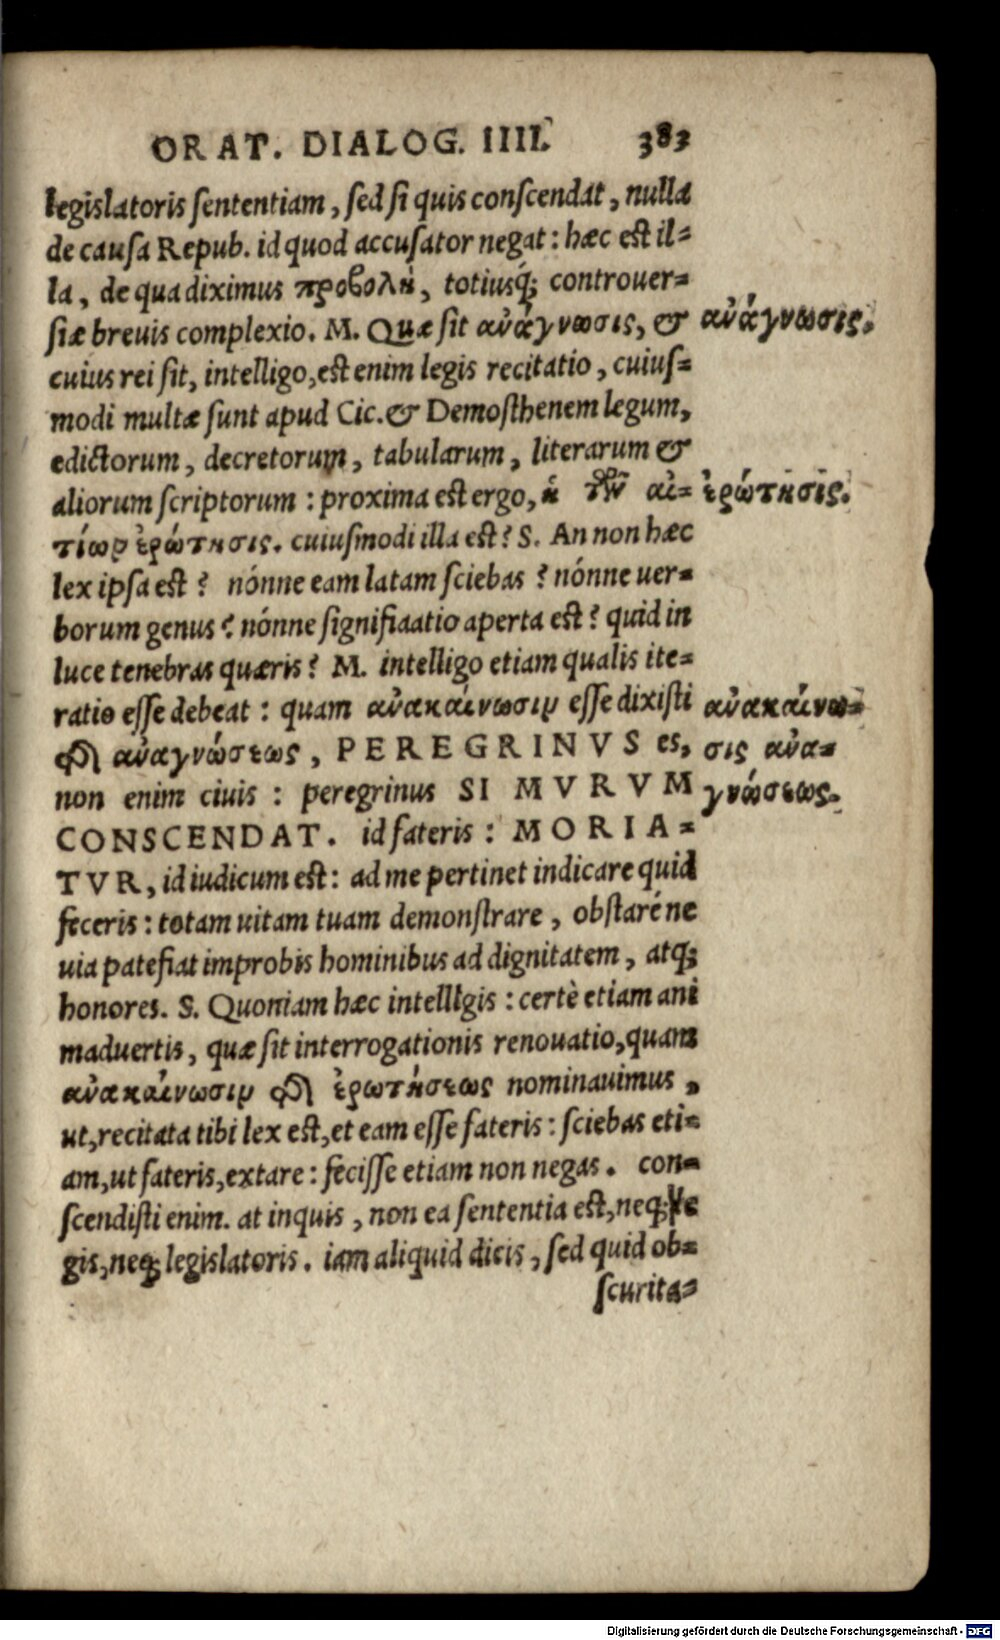 ORAT. DIALOG. IIII. 383
legislatoris ſententiam, ſed ſi quis conſcendat, nulla
de cauſa Repub. id quod accuſator negat: hæc est il=
la, de qua diximus προβολὴ, totiusq́; controuer=
ſiæ breuis complexio. M. Quæ ſit ἀνάγνωσις, &
ἀνάγνωσις.
cuius rei ſit, intelligo, est enim legis recitatio, cuiuſ=
modi multæ ſunt apud Cic. & Demoſthenem legum,
edictorum, decretorum, tabularum, literarum &
aliorum ſcriptorum: proxima est ergo, ἡ τῶν αἰ=
ἐρώτησις.
τίων ἐρώτησις. cuiuſmodi illa est? S. An non hæc
lex ipſa est? nónne eam latam ſciebas? nónne uer=
borum genus? nónne ſignifiaatio aperta est? quid in
luce tenebras quæris? M. intelligo etiam qualis ite=
ratio eſſe debeat: quam ἀνακαίνωσιν eſſe dixiſti
ἀνακαίνω=
τῆς ἀναγνώσεως, PEREGRINVS es,
σις ἀνα=
non enim ciuis: peregrinus SI MVRVM
γνώσεως.
CONSCENDAT. id fateris: MORIA=
TVR, id iudicum est: ad me pertinet indicare quid
feceris: totam uitam tuam demonſtrare, obſtaréne
uia patefiat improbis hominibus ad dignitatem, atq;
honores. S. Quoniam hæc intellIgis: certè etiam ani
maduertis, quæ ſit interrogationis renouatio, quam
ἀνακαίνωσιν τῆς ἐρωτήσεως nominauimus,
ut, recitata tibi lex est, et eam eſſe fateris: ſciebas eti=
am, ut fateris, extare: feciſſe etiam non negas. con=
ſcendiſti enim. at inquis, non ea ſententia est, neq; le
gis, neq; legislatoris. iam aliquid dicis, ſed quid ob=
ſcurita=
Digitalisierung gefördert durch die Deutsche Forschungsgemeinschaft - DFG